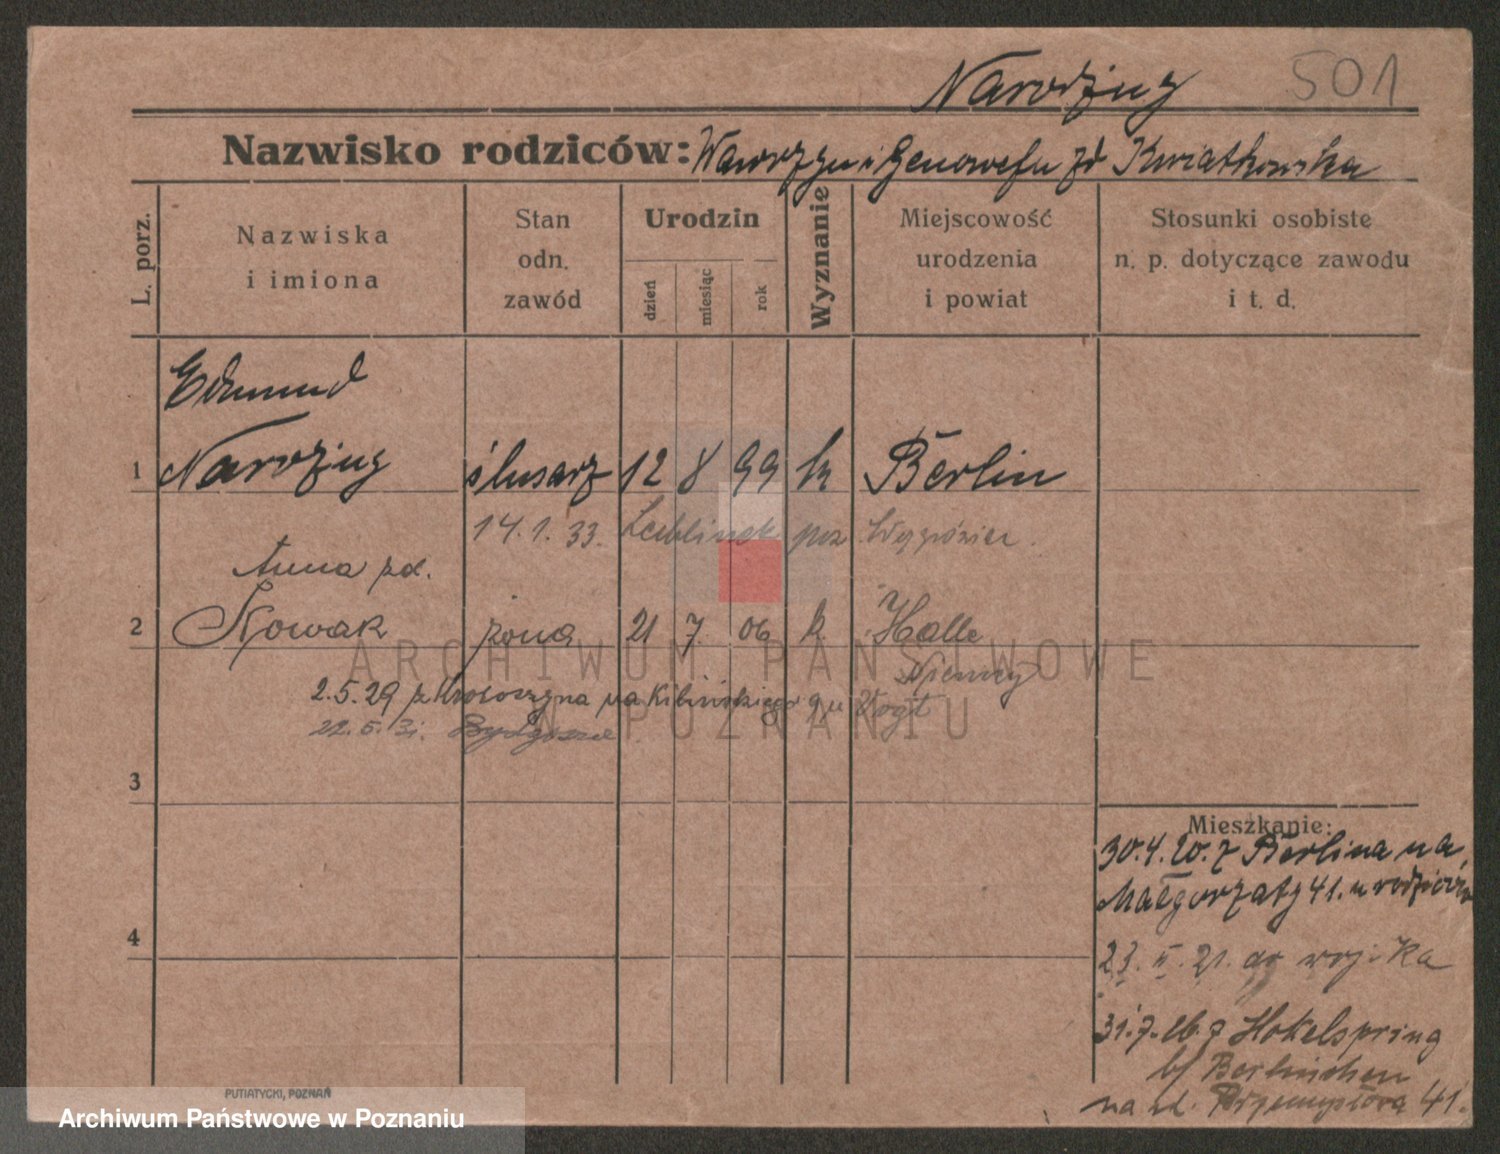 Narożny 501
Nazwisko rodziców: Wawrzyn i Genowefa zd Kwiatkowska
L. porz.
Nazwiska
i imiona
Stan
odn.
zawód
Urodzin
dzień
miesiąc
rok
Wyznanie
Miejscowość
urodzenia
i powiat
Stosunki osobiste
n. p. dotyczące zawodu
i t. d.
Edmund
1 Narożny ślusarz 12 8 99 k Berlin
14.1.33. Lublinek poz
Anna zd.
2 Nowak żona 21 7. 06 k. Halle
Niemcy
2.5.29 z Krotoszyna na Kilińskiego 9 u Vogt
22.5.31. Bydgoszcz
3
4
Mieszkanie:
30.4.20. z Berlina na
Małgorzaty 41. u rodziców
23.II.21. do wojska
31.7.26. z Hokelspring
b/ Berlinchen
na ul. Przemysłowa 41.
ARCHIWUM PAŃSTWOWE
W POZNANIU
PUTIATYCKI, POZNAŃ
Archiwum Państwowe w Poznaniu